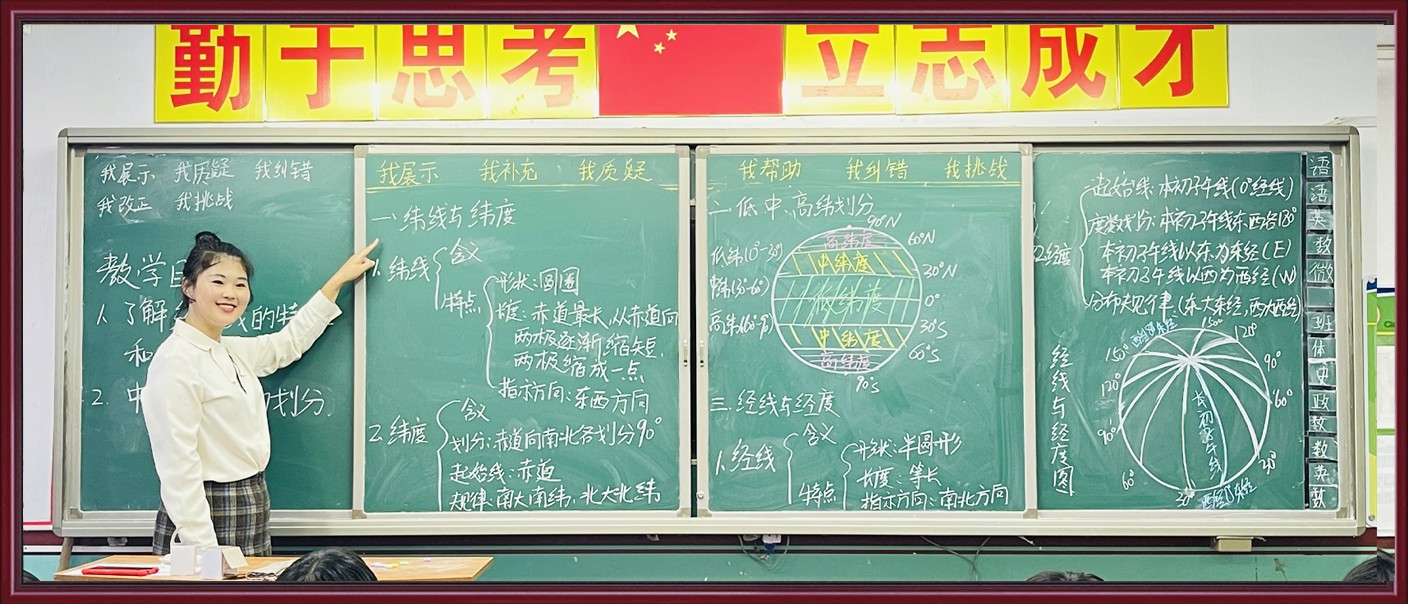 勤于思考
立志成才
我展示 我质疑 我纠错
我改正 我挑战
教学目
1. 了解
的特
和
2. 中
划分
我展示 我补充 我质疑
一.纬线与纬度
1.纬线
含义
特点
形状:圆圈
长度:赤道最长,从赤道向
两极逐渐缩短,
两极缩成一点
指示方向:东西方向
2.纬度
含义
划分:赤道向南北各划分90°
起始线:赤道
规律:南大南纬,北大北纬
我帮助 我纠错 我挑战
二.低中高纬划分
90°N
60°N
30°N
0°
30°S
60°S
90°S
高纬度
中纬度
低纬度
中纬度
高纬度
三.经线与经度
1.经线
含义
特点
形状:半圆形
长度:等长
指示方向:南北方向
2.经度
起始线:本初子午线(0°经线)
度数划分:本初子午线东、西各180°
本初子午线以东为东经(E)
本初子午线以西为西经(W)
分布规律:(东大东经,西大西经)
经线与经度图
150°
120°
90°
60°
150°
120°
90°
60°
20°
20°
本初子午线
语
语
英
数
微
班
体
史
政
数
英
数